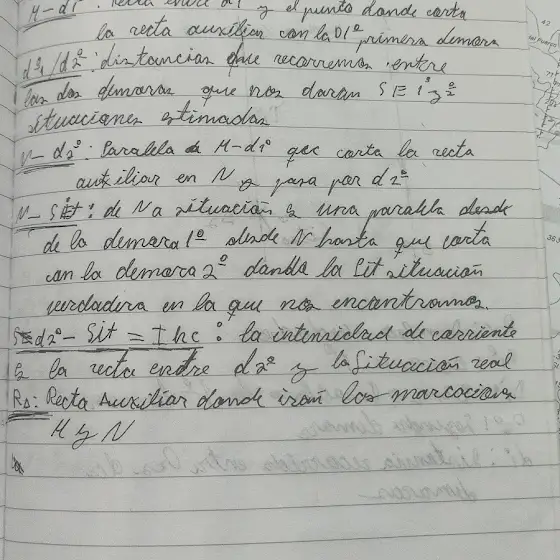 H-d1º: Recta entre d1 y el punto donde corta
la recta auxiliar con la D1º primera demora
d1º/d2º: distancias que recorremos entre
las dos demoras que nos daran SE 1º y 2º
situaciones estimadas
N-d2º: Paralela a H-d1º que corta la recta
auxiliar en N y pasa por d2º
N-Sit: de N a situación es una paralela desde
de la demora 1º desde N hasta que corta
con la demora 2º donde la Sit situación
verdadera en la que nos encontramos.
d2º-Sit = Ihc: la intensidad de corriente
es la recta entre d2º y la Situación real
Ra: Recta Auxiliar donde irán las marcaciones
H y N